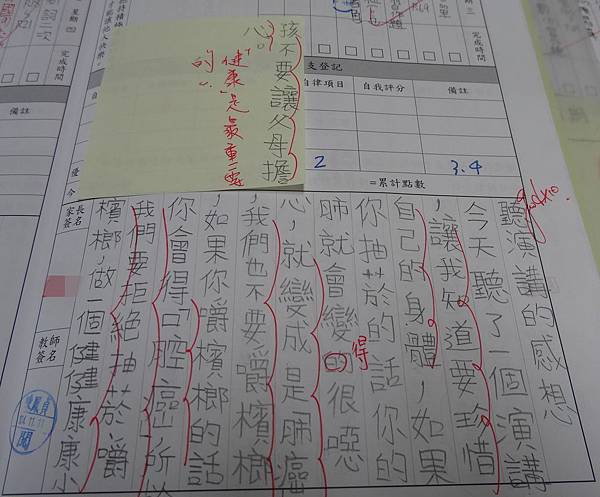 星期四
完成時間
完成時間
備註
支登記
自律項目
自我評分
備註
2
3.4
=累計點數
家長簽名
教師簽名
聽演講的感想
今天聽了一個演講
,讓我知道要珍惜
自己的身體,如果
你抽菸的話你的
肺就會變的很噁
得
心,就變成是肺癌
,我們也不要嚼檳榔
,如果你嚼檳榔的話
你會得「口腔癌」所以
我們要拒絕抽菸、嚼
檳榔,做一個健健康康小
孩不要讓父母擔
心。
"健康"是最重要
的。